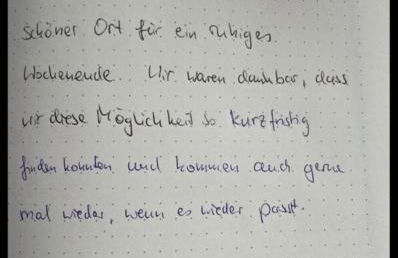 schöner Ort für ein ruhiges
Wochenende. Wir waren dankbar, dass
wir diese Möglichkeit so kurzfristig
finden konnten und kommen auch gerne
mal wieder, wenn es wieder passt.